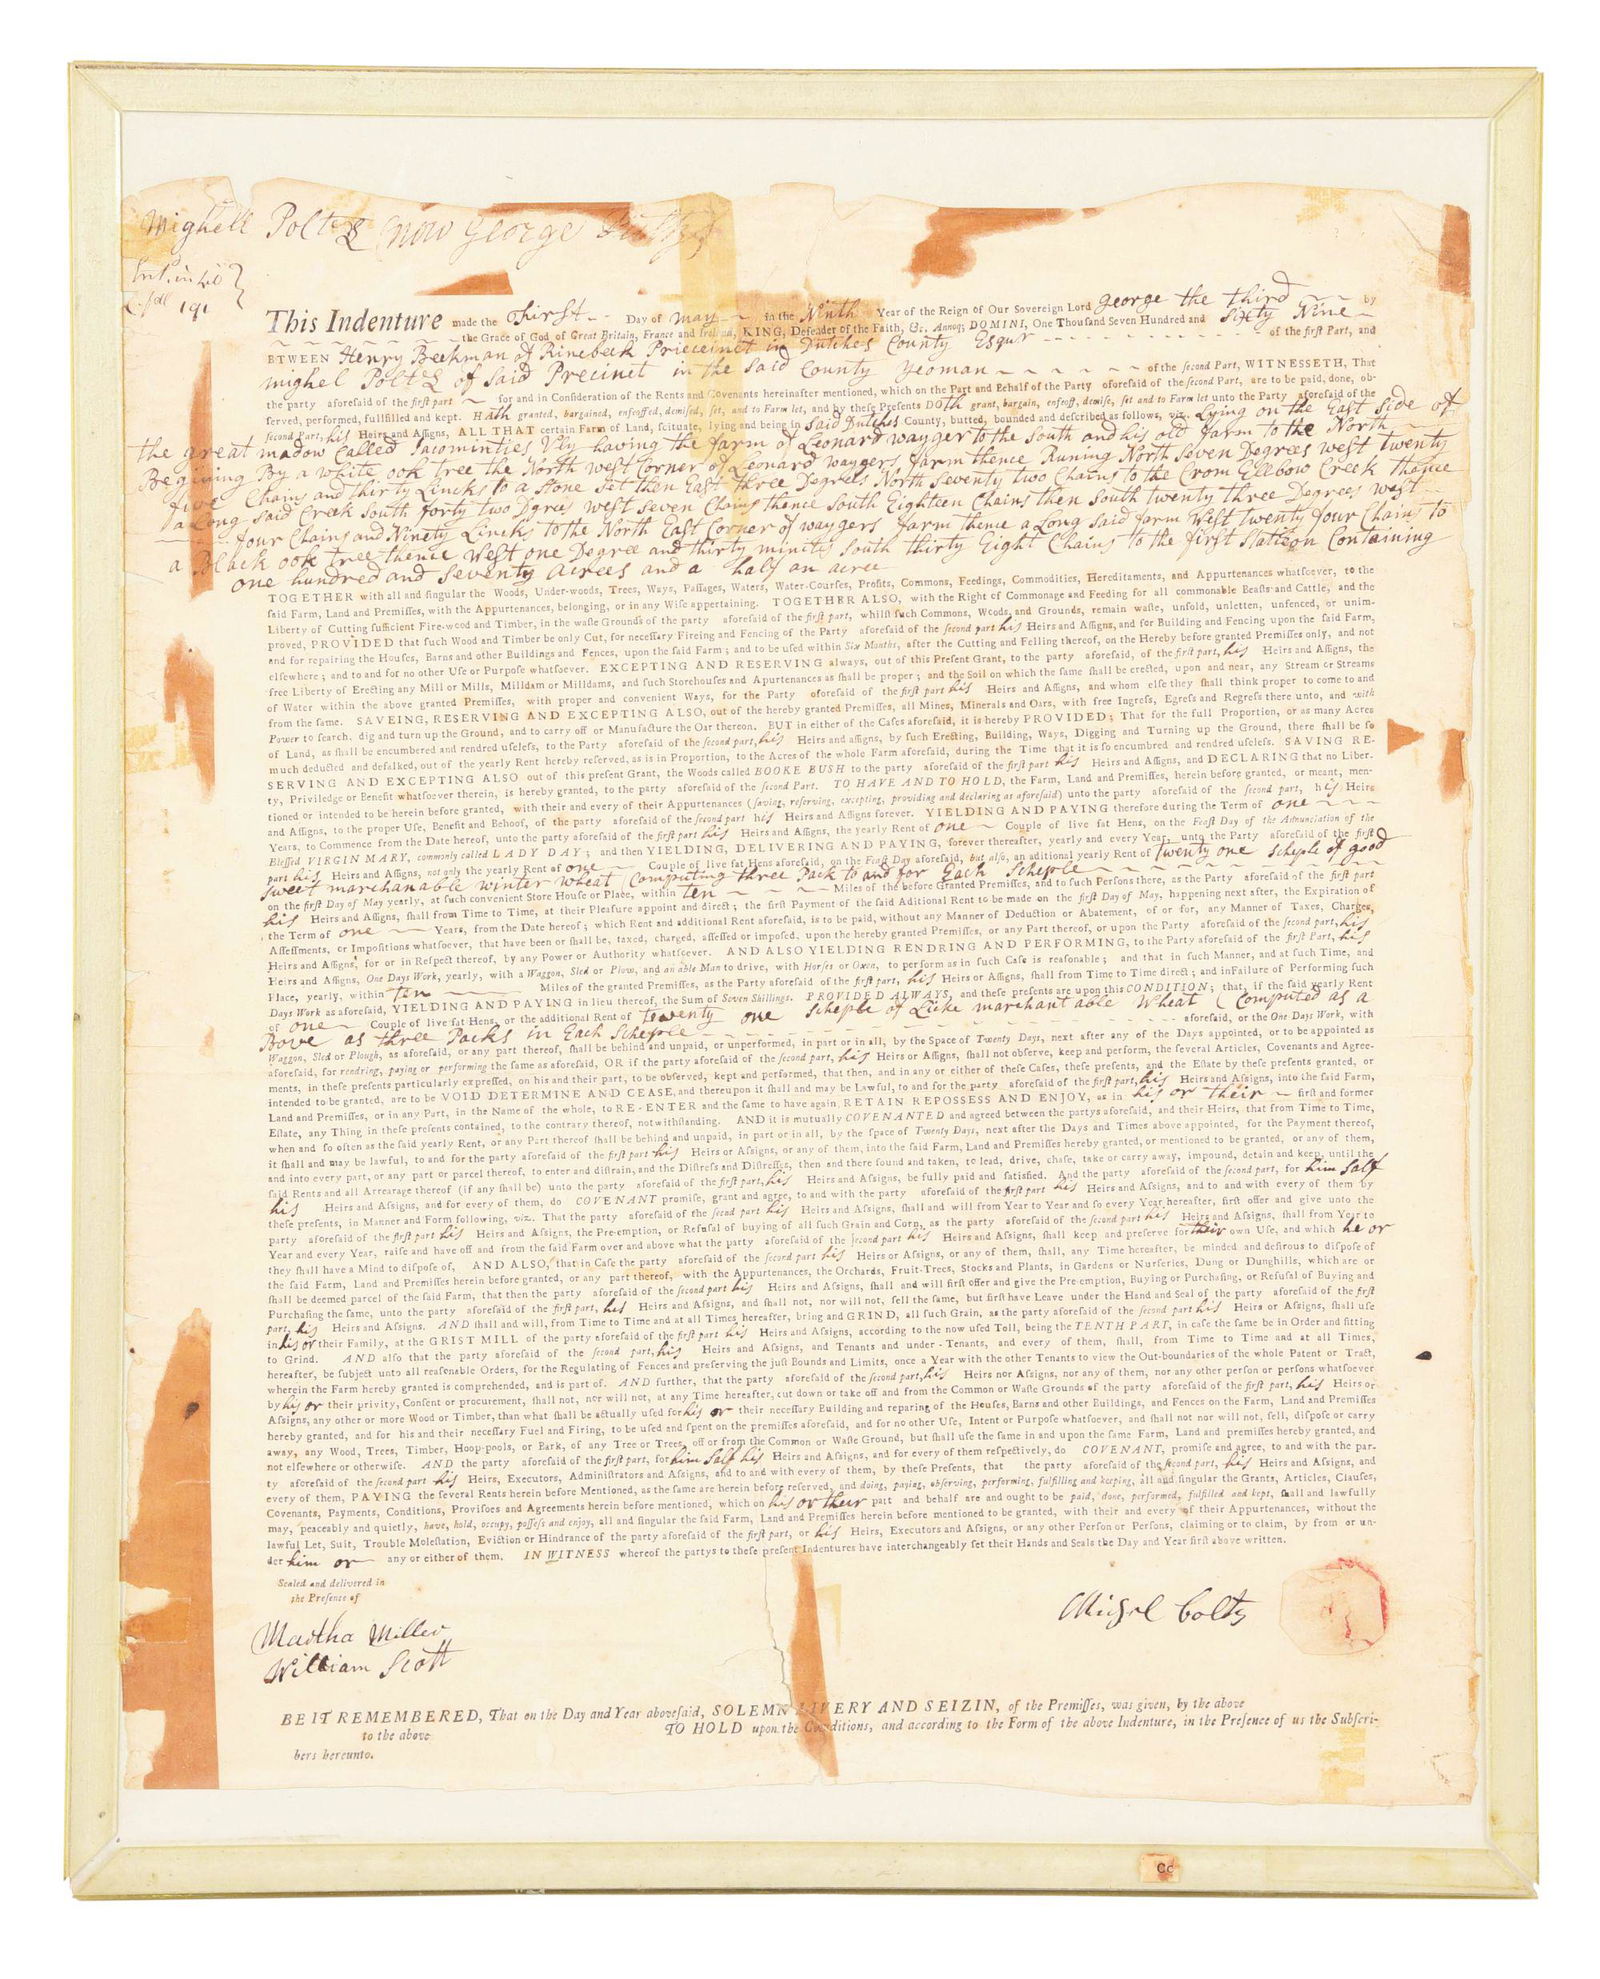 Mighell Polts now George
191
This Indenture made the First Day of may in the Ninth Year of the Reign of Our Sovereign Lord george the third by
the Grace of God of Great Britain, France and Ireland, KING, Defender of the Faith, &c. Annoq; DOMINI, One Thousand Seven Hundred and sixty Nine
ETWEEN Henry Beekman of Rinebeck Priecinct in Dutches County Esqur of the first Part, and
mighel Polts of Said Precinct in the Said County yeoman of the second Part, WITNESSETH, That
the party aforesaid of the first part for and in Consideration of the Rents and Covenants hereinafter mentioned, which on the Part and Behalf of the Party oforesaid of the second Part, are to be paid, done, ob-
served, performed, fullfilled and kept. Hath granted, bargained, enfeoffed, demised, set, and to Farm let, and by these Presents DOth grant, bargain, enfeoff, demise, set and to Farm let unto the Party aforesaid of the
second Part, his Heirs and Assigns, ALL THAT certain Farm of Land, scituate, lying and being in Said Dutches County, butted, bounded and described as follows, viz. Lying on the East side of
the great madow Called Jacominties Vly having the farm of Leonard wayger to the South and his old farm to the North
Begining By a white ook tree the North west Corner of Leonard waygers farm thence Runing North Seven Degrees west twenty
five Chains and thirty Lincks to a stone Set then East three Degrees North Seventy two Chains to the Crom Ellbow Creek thence
a Long said Creek South forty two Dgrees west seven Chains thence South Eighteen Chains then South twenty three Degrees west
four Chains and Ninety Lincks to the North East Corner of waygers farm thence a Long Said farm West twenty four Chains to
a Black ook tree thence West one Degree and thirty minits South thirty Eight Chains to the first Statieon Containing
one hundred and Seventy acrees and a half an acree
TOGETHER with all and singular the Woods, Under-woods, Trees, Ways, Passages, Waters, Water-Courses, Profits, Commons, Feedings, Commodities, Hereditaments, and Appurtenances whatsoever, to the
said Farm, Land and Premisses, with the Appurtenances, belonging, or in any Wise appertaining. TOGETHER ALSO, with the Right of Commonage and Feeding for all commonable Beasts and Cattle, and the
Liberty of Cutting sufficient Fire-wood and Timber, in the waste Grounds of the party aforesaid of the first part, whilst such Commons, Woods, and Grounds, remain waste, unsold, unletten, unfenced, or unim-
proved, PROVIDED that such Wood and Timber be only Cut, for necessary Fireing and Fencing of the Party aforesaid of the second part his Heirs and Assigns, and for Building and Fencing upon the said Farm,
and for repairing the Houses, Barns and other Buildings and Fences, upon the said Farm; and to be used within Six Months, after the Cutting and Felling thereof, on the Hereby before granted Premisses only, and not
elsewhere; and to and for no other Use or Purpose whatsoever. EXCEPTING AND RESERVING always, out of this Present Grant, to the party aforesaid, of the first part, his Heirs and Assigns, the
free Liberty of Erecting any Mill or Mills, Milldam or Milldams, and such Storehouses and Apurtenances as shall be proper; and the Soil on which the same shall be erected, upon and near, any Stream or Streams
of Water within the above granted Premisses, with proper and convenient Ways, for the Party oforesaid of the first part his Heirs and Assigns, and whom else they shall think proper to come to and
from the same. SAVEING, RESERVING AND EXCEPTING ALSO, out of the hereby granted Premisses, all Mines, Minerals and Oars, with free Ingress, Egress and Regress there unto, and with
Power to search, dig and turn up the Ground, and to carry off or Manufacture the Oar thereon. BUT in either of the Cases aforesaid, it is hereby PROVIDED; That for the full Proportion, or as many Acres
of Land, as shall be encumbered and rendred useless, to the Party aforesaid of the second part, his Heirs and assigns, by such Erecting, Building, Ways, Digging and Turning up the Ground, there shall be so
much deducted and defalked, out of the yearly Rent hereby reserved, as is in Proportion, to the Acres of the whole Farm aforesaid, during the Time that it is so encumbred and rendred useless. SAVING RE-
SERVING AND EXCEPTING ALSO out of this present Grant, the Woods called BOOKE BUSH to the party aforesaid of the first part his Heirs and Assigns, and DECLARING that no Liber-
ty, Priviledge or Benefit whatsoever therein, is hereby granted, to the party aforesaid of the second Part. TO HAVE AND TO HOLD, the Farm, Land and Premisses, herein before granted, or meant, men-
tioned or intended to be herein before granted, with their and every of their Appurtenances (saving, reserving, excepting, providing and declaring as aforesaid) unto the party aforesaid of the second part, his Heirs
and Assigns, to the proper Use, Benefit and Behoof, of the party aforesaid of the second part his Heirs and Assigns forever. YIELDING AND PAYING therefore during the Term of one
Years, to Commence from the Date hereof, unto the party aforesaid of the first part his Heirs and Assigns, the yearly Rent of one Couple of live fat Hens, on the Feast Day of the Adnunciation of the
Blessed VIRGIN MARY, commonly called LADY DAY; and then YIELDING, DELIVERING AND PAYING, forever thereafter, yearly and every Year, unto the Party aforesaid of the first
part his Heirs and Assigns, not only the yearly Rent of one Couple of live fat Hens aforesaid, on the Feast Day aforesaid, but also, an aditional yearly Rent of twenty one scheple of good
sweet marchanable winter wheat (Computing three Pack to and for Each Scheple
on the first Day of May yearly, at such convenient Store House or Place, within ten Miles of the before Granted Premisses, and to such Persons there, as the Party aforesaid of the first part
his Heirs and Assigns, shall from Time to Time, at their Pleasure appoint and direct; the first Payment of the said Aditional Rent to be made on the first Day of May, happening next after, the Expiration of
the Term of one Years, from the Date hereof; which Rent and additional Rent aforesaid, is to be paid, without any Manner of Deduction or Abatement, of or for, any Manner of Taxes, Charges,
Assessments, or Impositions whatsoever, that have been or shall be, taxed, charged, assessed or imposed, upon the hereby granted Premisses, or any Part thereof, or upon the Party aforesaid of the second part, his
Heirs and Assigns, for or in Respect thereof, by any Power or Authority whatsoever. AND ALSO YIELDING RENDRING AND PERFORMING, to the Party aforesaid of the first Part, his
Heirs and Assigns, One Days Work, yearly, with a Waggon, Sled or Plow, and an able Man to drive, with Horses or Oxen, to perform as in such Case is reasonable; and that in such Manner, and at such Time, and
Place, yearly, within ten Miles of the granted Premisses, as the Party aforesaid of the first part, his Heirs or Assigns, shall from Time to Time direct; and in Failure of Performing such
Days Work as aforesaid, YIELDING AND PAYING in lieu thereof, the Sum of Seven Shillings. PROVIDED ALWAYS, and these presents are upon this CONDITION; that, if the said yearly Rent
of one Couple of live fat Hens, or the additional Rent of twenty one Scheple of Licke marchant able wheat (Computed as a
Bove as three Packs in Each Scheple aforesaid, or the One Days Work, with
Waggon, Sled or Plough, as aforesaid, or any part thereof, shall be behind and unpaid, or unperformed, in part or in all, by the Space of Twenty Days, next after any of the Days appointed, or to be appointed as
aforesaid, for rendring, paying or performing the same as aforesaid, OR if the party aforesaid of the second part, his Heirs or Assigns, shall not observe, keep and perform, the several Articles, Covenants and Agree-
ments, in these presents particularly expressed, on his and their part, to be observed, kept and performed, that then, and in any or either of these Cases, these presents, and the Estate by these presents granted, or
intended to be granted, are to be VOID DETERMINE AND CEASE, and thereupon it shall and may be Lawful, to and for the party aforesaid of the first part, his Heirs and Assigns, into the said Farm,
Land and Premisses, or in any Part, in the Name of the whole, to RE-ENTER and the same to have again, RETAIN REPOSSESS AND ENJOY, as in his or their first and former
Estate, any Thing in these presents contained, to the contrary thereof, notwithstanding. AND it is mutually COVENANTED and agreed between the partys aforesaid, and their Heirs, that from Time to Time,
when and so often as the said yearly Rent, or any Part thereof shall be behind and unpaid, in part or in all, by the space of Twenty Days, next after the Days and Times above appointed, for the Payment thereof,
it shall and may be lawful, to and for the party aforesaid of the first part his Heirs or Assigns, or any of them, into the said Farm, Land and Premisses hereby granted, or mentioned to be granted, or any of them,
and into every part, or any part or parcel thereof, to enter and distrain, and the Distress and Distresses, then and there found and taken, to lead, drive, chase, take or carry away, impound, detain and keep, until the
said Rents and all Arrearage thereof (if any shall be) unto the party aforesaid of the first part, his Heirs and Assigns, be fully paid and satisfied. And the party aforesaid of the second part, for him Salf
his Heirs and Assigns, and for every of them, do COVENANT promise, grant and agree, to and with the party aforesaid of the first part his Heirs and Assigns, and to and with every of them by
these presents, in Manner and Form following, viz. That the party aforesaid of the second part his Heirs and Assigns, shall and will from Year to Year and so every Year hereafter, first offer and give unto the
party aforesaid of the first part his Heirs and Assigns, the Pre-emption, or Refusal of buying of all such Grain and Corn, as the party aforesaid of the second part his Heirs and Assigns, shall from Year to
Year and every Year, raise and have off and from the said Farm over and above what the party aforesaid of the second part his Heirs and Assigns, shall keep and preserve for their own Use, and which he or
they shall have a Mind to dispose of, AND ALSO, that in Case the party aforesaid of the second part his Heirs or Assigns, or any of them, shall, any Time hereafter, be minded and desirous to dispose of
the said Farm, Land and Premisses herein before granted, or any part thereof, with the Appurtenances, the Orchards, Fruit-Trees, Stocks and Plants, in Gardens or Nurseries, Dung or Dunghills, which are or
shall be deemed parcel of the said Farm, that then the party aforesaid of the second part his Heirs and Assigns, shall and will first offer and give the Pre-emption, Buying or Purchasing, or Refusal of Buying and
Purchasing the same, unto the party aforesaid of the first part, his Heirs and Assigns, and shall not, nor will not, sell the same, but first have Leave under the Hand and Seal of the party aforesaid of the first
part, his Heirs and Assigns. AND shall and will, from Time to Time and at all Times hereafter, bring and GRIND, all such Grain, as the party aforesaid of the second part his Heirs or Assigns, shall use
in his or their Family, at the GRIST MILL of the party aforesaid of the first part his Heirs and Assigns, according to the now used Toll, being the TENTH PART, in case the same be in Order and fitting
to Grind. AND also that the party aforesaid of the second part, his Heirs and Assigns, and Tenants and under-Tenants, and every of them, shall, from Time to Time and at all Times,
hereafter, be subject unto all reasonable Orders, for the Regulating of Fences and preserving the just Bounds and Limits, once a Year with the other Tenants to view the Out-boundaries of the whole Patent or Tract,
wherein the Farm hereby granted is comprehended, and is part of. AND further, that the party aforesaid of the second part, his Heirs nor Assigns, nor any of them, nor any other person or persons whatsoever
by his or their privity, Consent or procurement, shall not, nor will not, at any Time hereafter, cut down or take off and from the Common or Waste Grounds of the party aforesaid of the first part, his Heirs or
Assigns, any other or more Wood or Timber, than what shall be actually used for his or their necessary Building and reparing of the Houses, Barns and other Buildings, and Fences on the Farm, Land and Premisses
hereby granted, and for his and their necessary Fuel and Firing, to be used and spent on the premisses aforesaid, and for no other Use, Intent or Purpose whatsoever, and shall not nor will not, sell, dispose or carry
away, any Wood, Trees, Timber, Hoop-pools, or Bark, of any Tree or Trees, off or from the Common or Waste Ground, but shall use the same in and upon the same Farm, Land and premisses hereby granted, and
not elsewhere or otherwise. AND the party aforesaid of the first part, for him Salf his Heirs and Assigns, and for every of them respectively, do COVENANT, promise and agree, to and with the par-
ty aforesaid of the second part his Heirs, Executors, Administrators and Assigns, and to and with every of them, by these Presents, that the party aforesaid of the second part, his Heirs and Assigns, and
every of them, PAYING the several Rents herein before Mentioned, as the same are herein before reserved, and doing, paying, observing, performing, fulfilling and keeping, all and singular the Grants, Articles, Clauses,
Covenants, Payments, Conditions, Provisoes and Agreements herein before mentioned, which on his or their part and behalf are and ought to be paid, done, performed, fulfilled and kept, shall and lawfully
may, peaceably and quietly, have, hold, occupy, possess and enjoy, all and singular the said Farm, Land and Premisses herein before mentioned to be granted, with their and every of their Appurtenances, without the
lawful Let, Suit, Trouble Molestation, Eviction or Hindrance of the party aforesaid of the first part, or his Heirs, Executors and Assigns, or any other Person or Persons, claiming or to claim, by from or un-
der him or any or either of them. IN WITNESS whereof the partys to these present Indentures have interchangeably set their Hands and Seals the Day and Year first above written.
Sealed and delivered in
the Presence of
Martha Miller
William Scott
BE IT REMEMBERED, That on the Day and Year abovesaid, SOLEMN LIVERY AND SEIZIN, of the Premisses, was given, by the above
to the above TO HOLD upon the Conditions, and according to the Form of the above Indenture, in the Presence of us the Subscri-
bers hereunto.